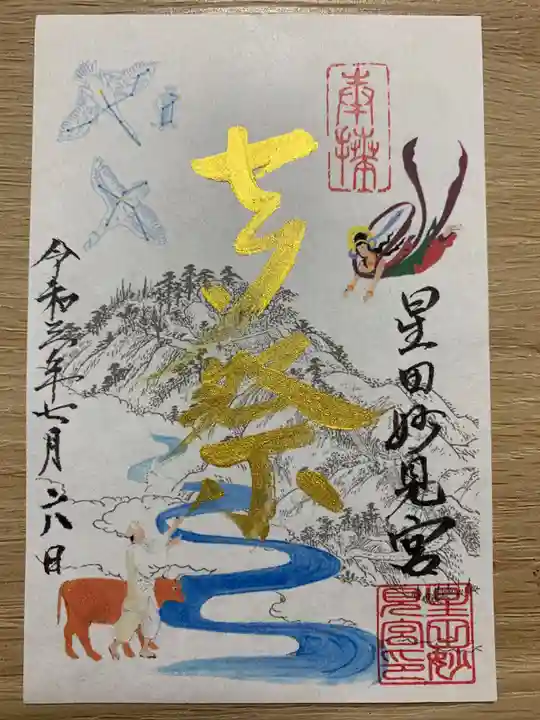 奉拝
七夕祭
星田妙見宮
星田妙
見宮印
令和三年七月六日